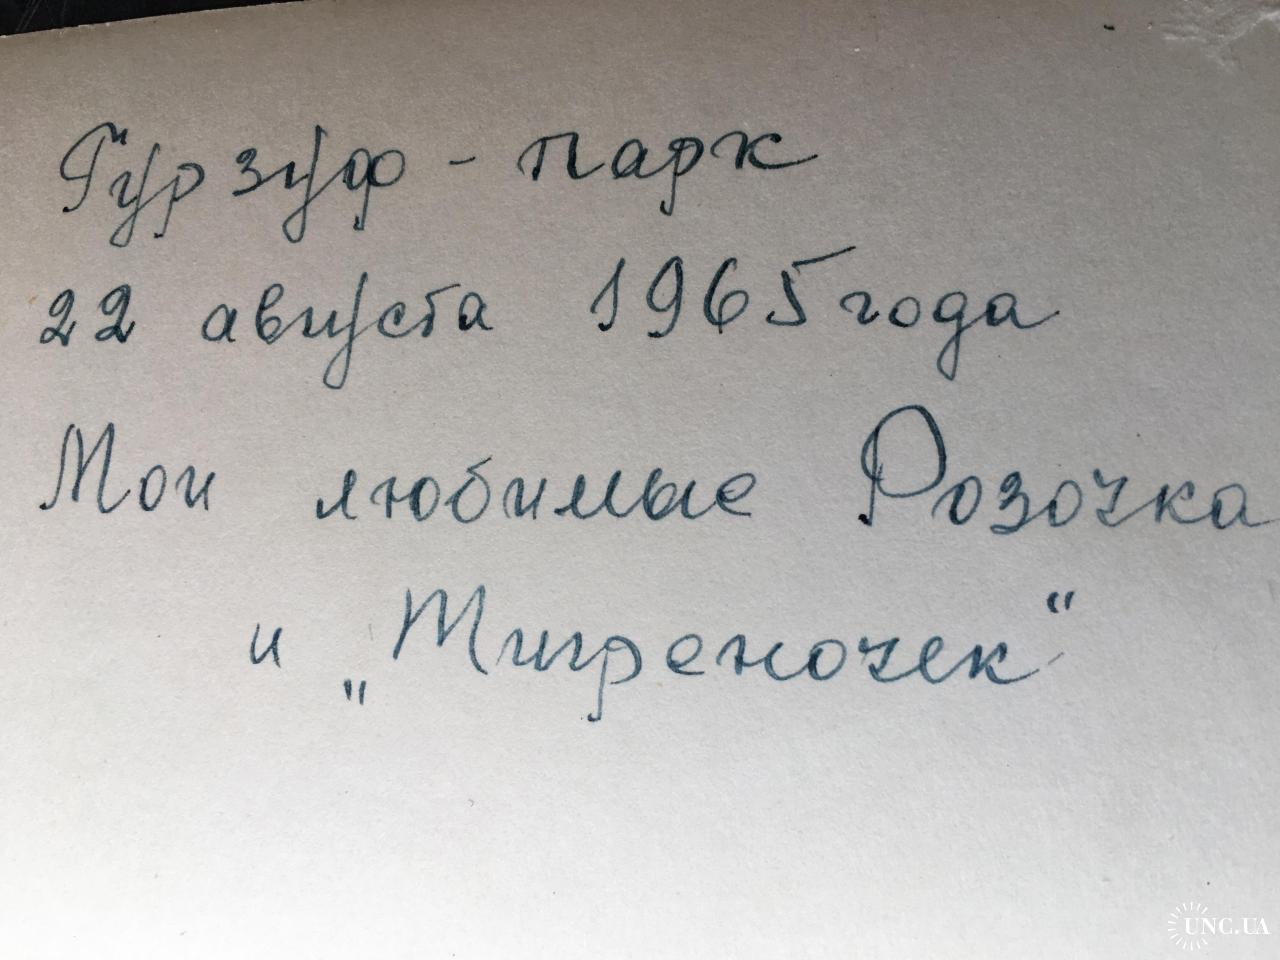 Гурзуф - парк
22 августа 1965 года
Мои любимые Розочка
и „Тигреночек“
UNC.UA